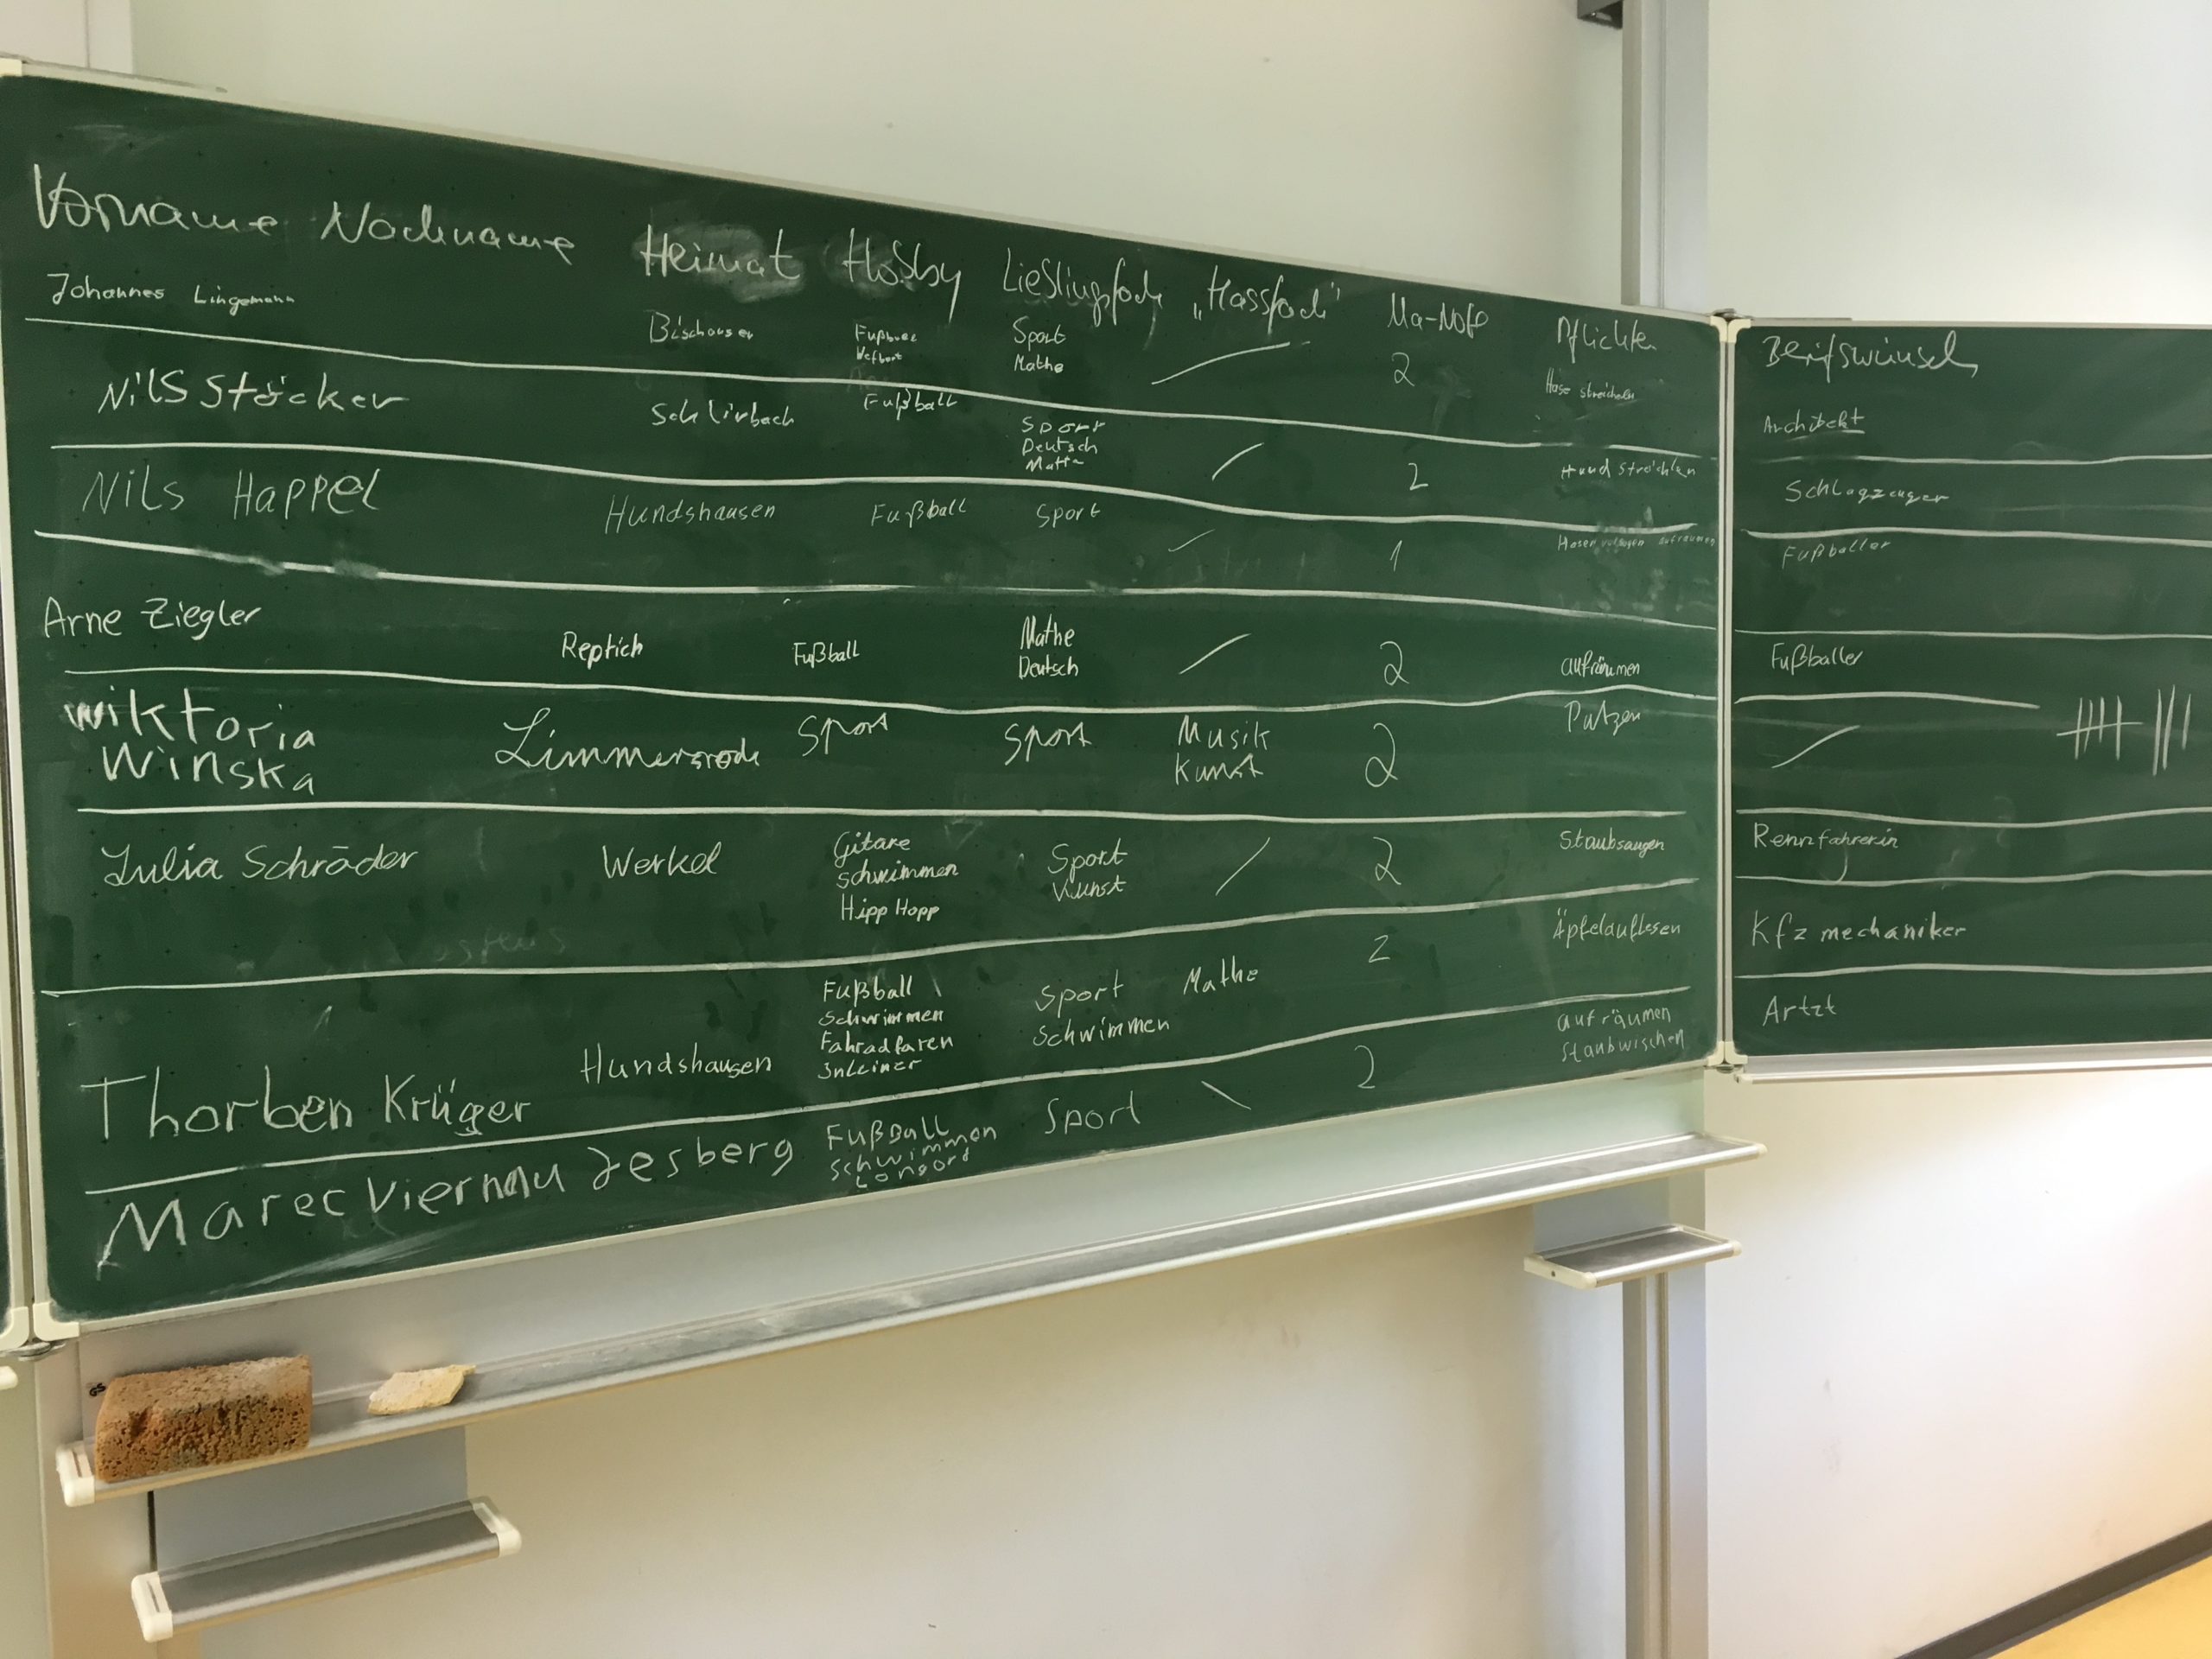 Vorname Nachname Heimat Hobby Lieblingsfach „Hassfach" Ma-Note Pflichten Berufswünsch
Johannes Lingemann Bischausen Fußball Sport 2 Hase streicheln Architekt
Mathe
Nils Stöcker Schlirbach Fußball Sport 2 Hund streicheln Schlagzeuger
Deutsch
Mathe
Nils Happel Hundshausen Fußball Sport 1 Hasen aufräumen Fußballer
Arne Ziegler Reptich Fußball Mathe 2 aufräumen Fußballer
Deutsch
wiktoria Limmersrode Sport Sport Musik 2 Putzen
Winska Kunst
Julia Schräder Werkel Gitare Sport 2 Staubsaugen Rennfahrerin
Schwimmen Kunst
Hipp Hopp
Thorben Krüger Hundshausen Fußball Sport Mathe 2 Äpfelauflesen Kfz mechaniker
Schwimmen Schwimmen
Fahradfaren
Inleiner
Marec Viernau Jesberg Fußball Sport 2 aufräumen Artzt
Schwimmen Staubwischen